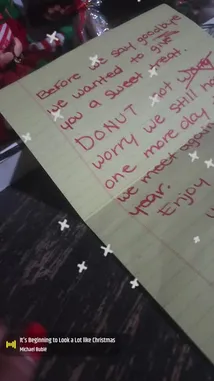 Before we say goodbye
we wanted to give
you a sweet treat.
DONUT not
worry we still
one more day
we meet again
year.
Enjoy
It's Beginning to Look a Lot like Christmas
Michael Bublé